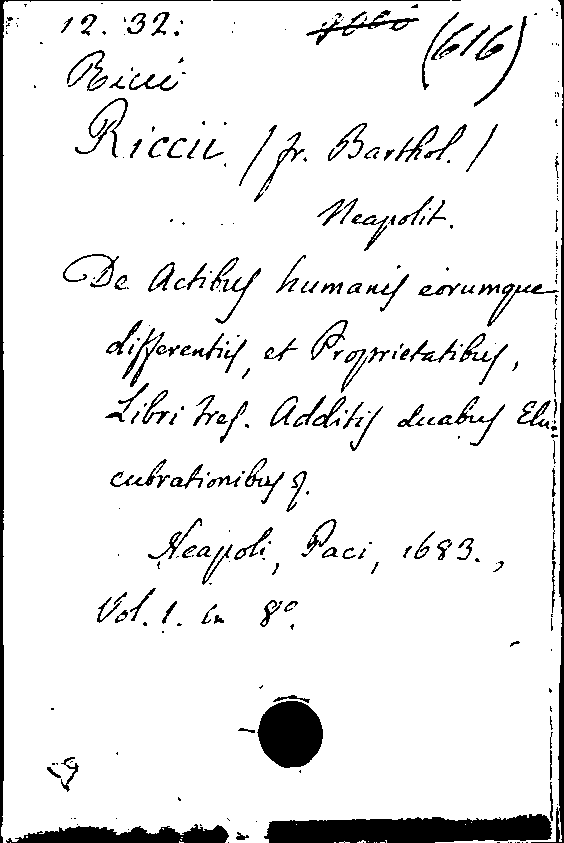 12. 32.
(616)
Ricci
Riccii. / fr. Barthol. /
Neapolit.
De Actibus humanis eorumque
differentiis, et Proprietatibus,
Libri tres. Additis duabus Elu-
cubrationibus
Neapoli, Paci, 1683.,
Vol. 1. in 8°.